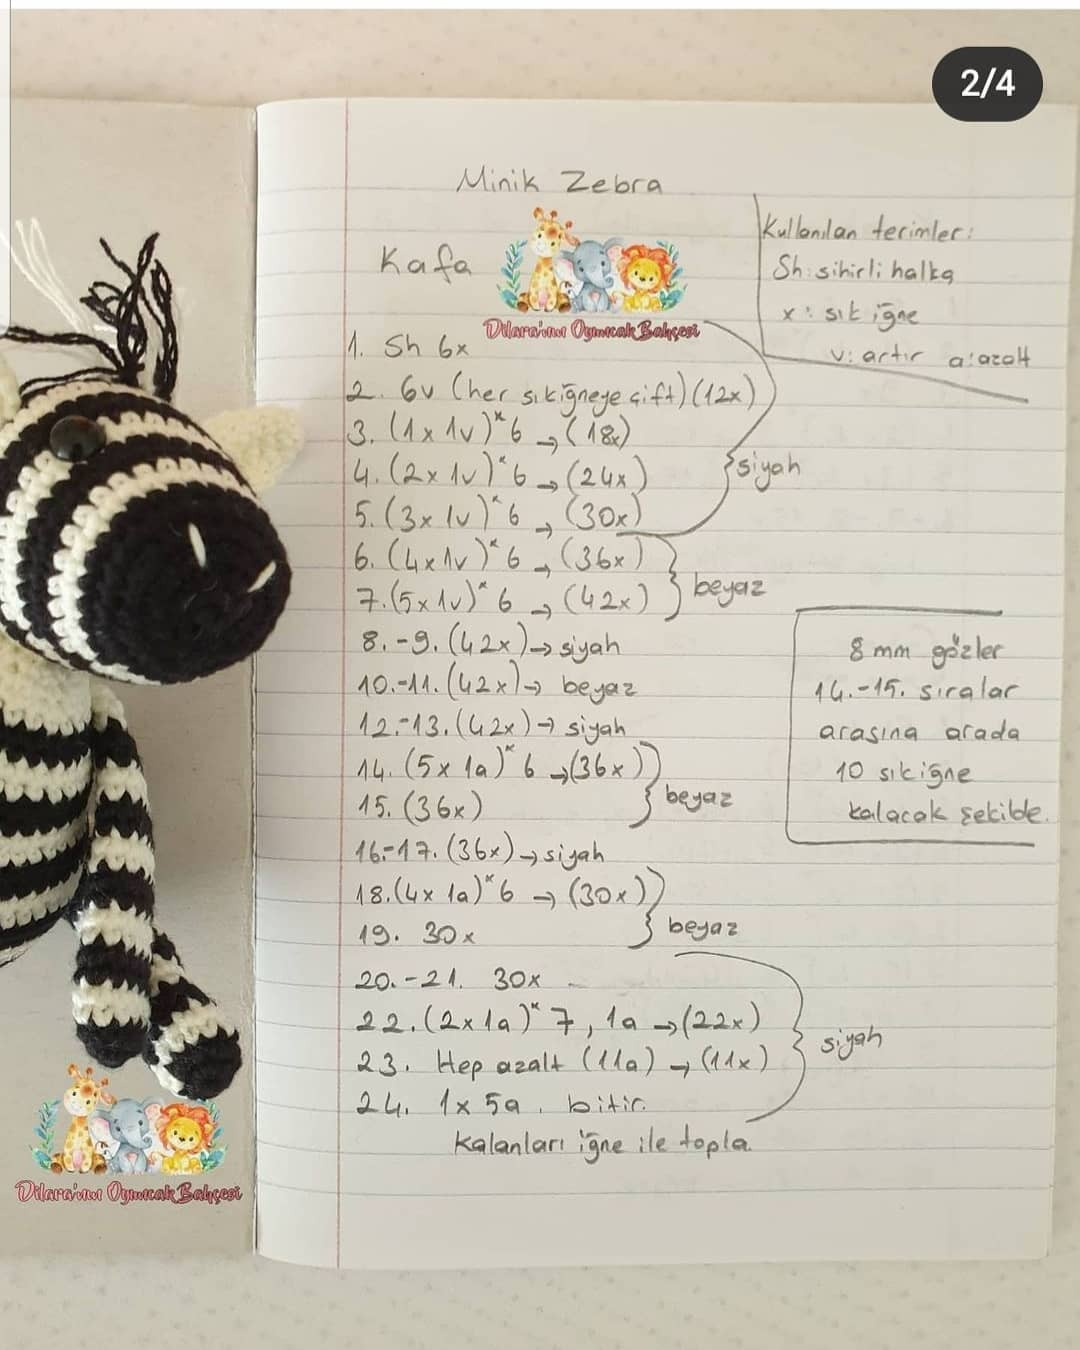 2/4
Minik Zebra
Kullanılan terimler:
Sh: sihirli halka
x : sık iğne
v: artır a: azalt
Kafa
Dilara'nın Oyuncak Bahçesi
1. Sh 6x
2. 6v (her sık iğneye çift) (12x)
3. (1x 1v)*6 → (18x)
4. (2x 1v)*6 → (24x)
5. (3x 1v)*6 → (30x)
siyah
6. (4x 1v)*6 → (36x)
7. (5x 1v)*6 → (42x)
beyaz
8.-9. (42x) → siyah
10.-11. (42x) → beyaz
12.-13. (42x) → siyah
14. (5x 1a)*6 → (36x)
15. (36x)
beyaz
16.-17. (36x) → siyah
18. (4x 1a)*6 → (30x)
19. 30x
beyaz
20.-21. 30x
22. (2x 1a)*7, 1a → (22x)
23. Hep azalt (11a) → (11x)
24. 1x 5a. bitir.
siyah
Kalanları iğne ile topla.
8 mm gözler
14.-15. sıralar
arasına arada
10 sık iğne
kalacak şekilde.
Dilara'nın Oyuncak Bahçesi